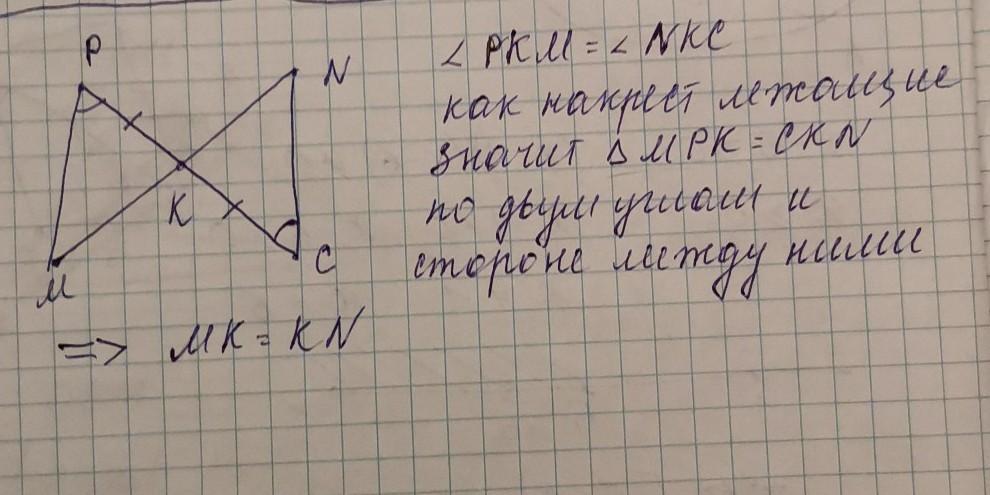 P
N
K
C
M
∠ PKM = ∠ NKC
как накрест лежащие
значит Δ MPK = CKN
по двум углам и
стороне между ними
=> MK = KN